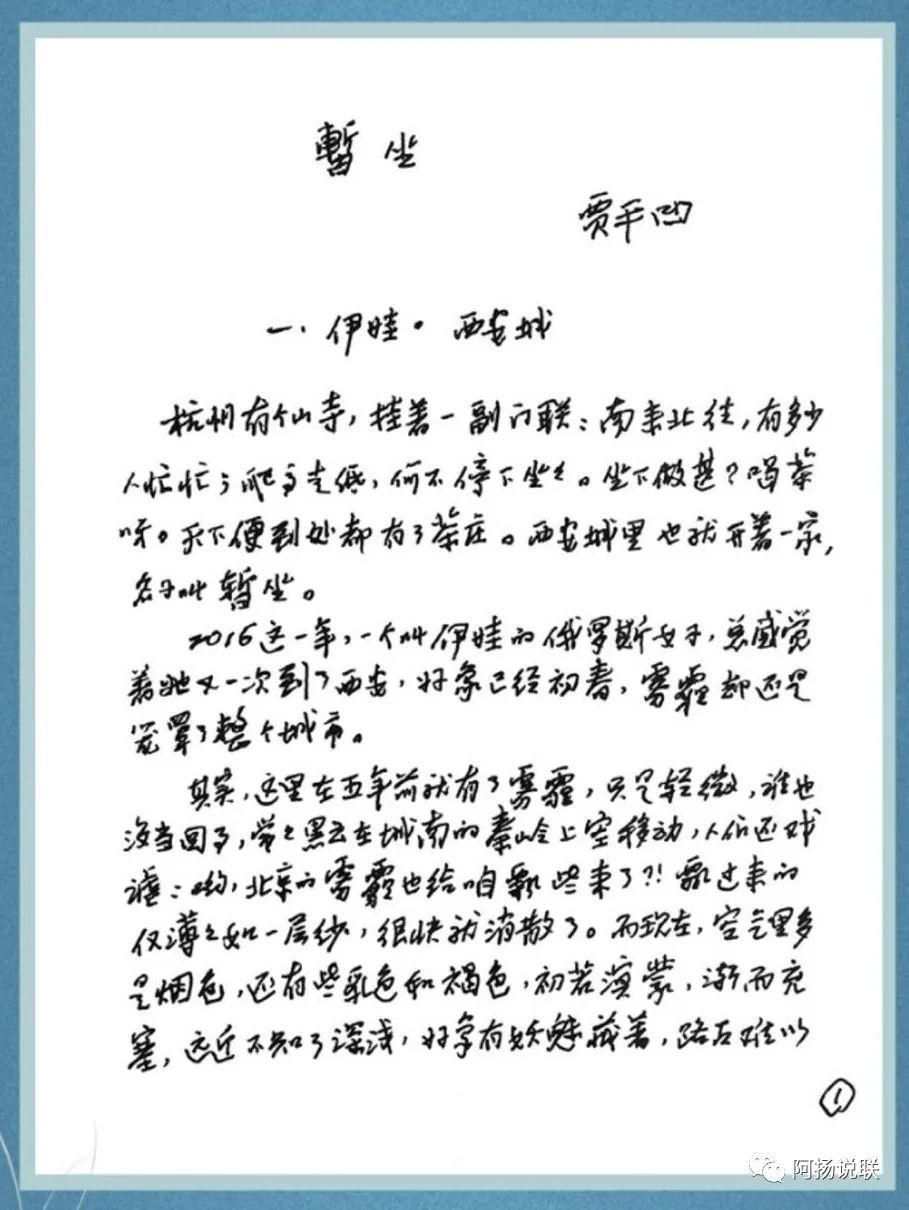 暫坐
贾平凹
一、伊娃·西安城
杭州有个山寺，挂着一副门联：南来北往，有多少
人忙忙；爬高走低，何不停下坐坐。坐下做甚？喝茶
呀。天下便到处都有了茶庄。西安城里也就开着一家，
名子叫暂坐。
2016这一年，一个叫伊娃的俄罗斯女子，总感觉
着她又一次到了西安，好象已经初春，雾霾却还是
笼罩了整个城市。
其实，这里在五年前就有了雾霾，只是轻微，谁也
没当回事，常常黑云在城南的秦岭上空移动，人们还戏
谑：哟，北京的雾霾也给咱飘些来了?！飘过来的
仅薄薄如一层纱，很快就消散了。而现在，空气里多
是烟色，还有些乳色和褐色，初若溟蒙，渐而充
塞，远近不知了深浅，好像有妖魅藏着，路上难以
1
阿扬说联